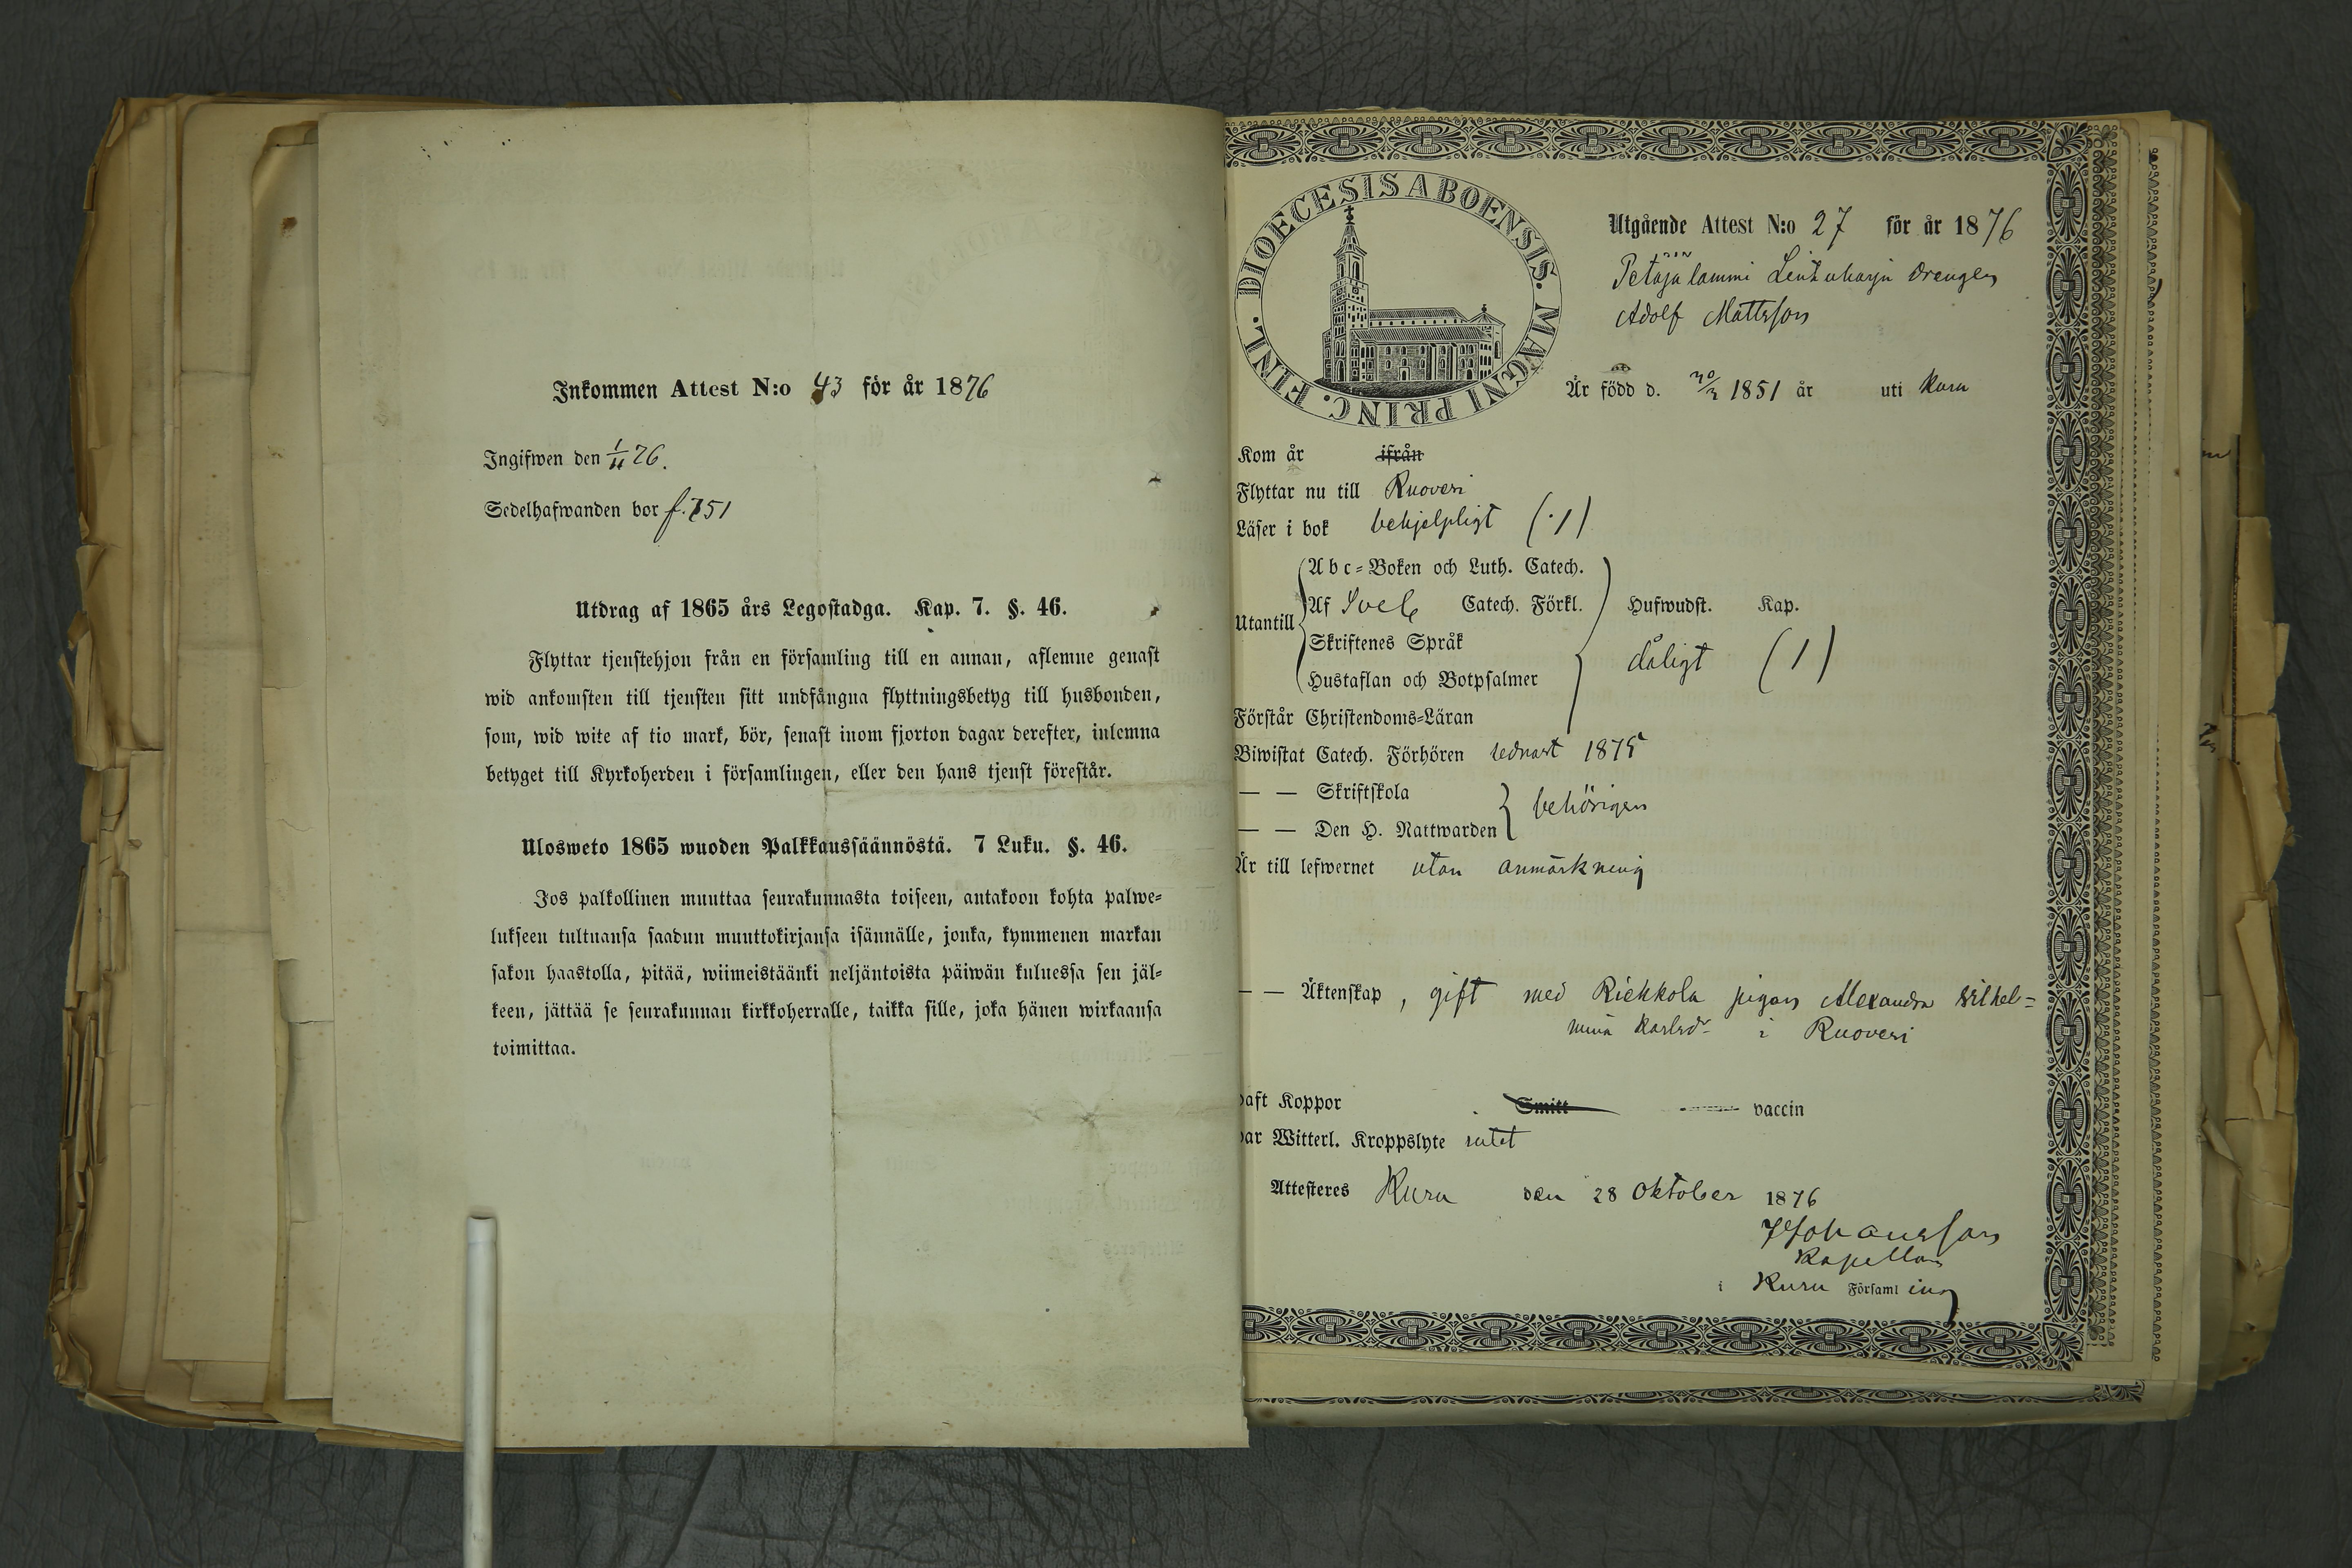 Inkommen Attest N:o 43 för år 1876
Ingifwen den 1/11 76.
Sedelhafwanden bor f. 751
Utdrag af 1865 års Legostadga. Kap. 7. §. 46.
Flyttar tjenstehjon från en församling till en annan, aflemne genast
wid ankomsten till tjensten sitt undfångna flyttningsbetyg till husbonden,
som, wid wite af tio mark, bör, senast inom fjorton dagar derefter, inlemna
betyget till Kyrkoherden i församlingen, eller den hans tjenst förestår.
Ulosweto 1865 wuoden Palkkaussäännöstä. 7 Luku. §. 46.
Jos palkollinen muuttaa seurakunnasta toiseen, antakoon kohta palwe-
lukseen tultuansa saadun muuttokirjansa isännälle, jonka, kymmenen markan
sakon haastolla, pitää, wiimeistäänki neljäntoista päiwän kuluessa sen jäl-
keen, jättää se seurakunnan kirkkoherralle, taikka sille, joka hänen wirkaansa
toimittaa.
DIOECESIS ABOENSIS. MAGNI PRINC. FINL.
Utgående Attest N:o 27 för år 1876
Petäjälammi drengen
Adolf Mattsson
Är född d. 1851 år uti Kuru
Kom år ifrån
Flyttar nu till Ruovesi
Läser i bok behjelpligt (·1)
Utantill
Abc-Boken och Luth. Catech.
Af Sveb Catech. Förkl. Hufwudst. Kap.
Skriftenes Språk
dåligt (1)
Hustaflan och Botpsalmer
Förstår Christendoms-Läran
Biwistat Catech. Förhören sednast 1875
— — Skriftskola
behörigen
— — Den H. Nattwarden
Är till lefwernet utan anmärkning
— — Äktenskap, gift med Riekkola pigan Alexandra Wilhel-
mina Karlsdr i Ruovesi
haft Koppor Smitt vaccin
har Witterl. Kroppslyte intet
Attesteres Kuru den 28 Oktober 1876
Johansson
Kapellan
i Kuru Församling